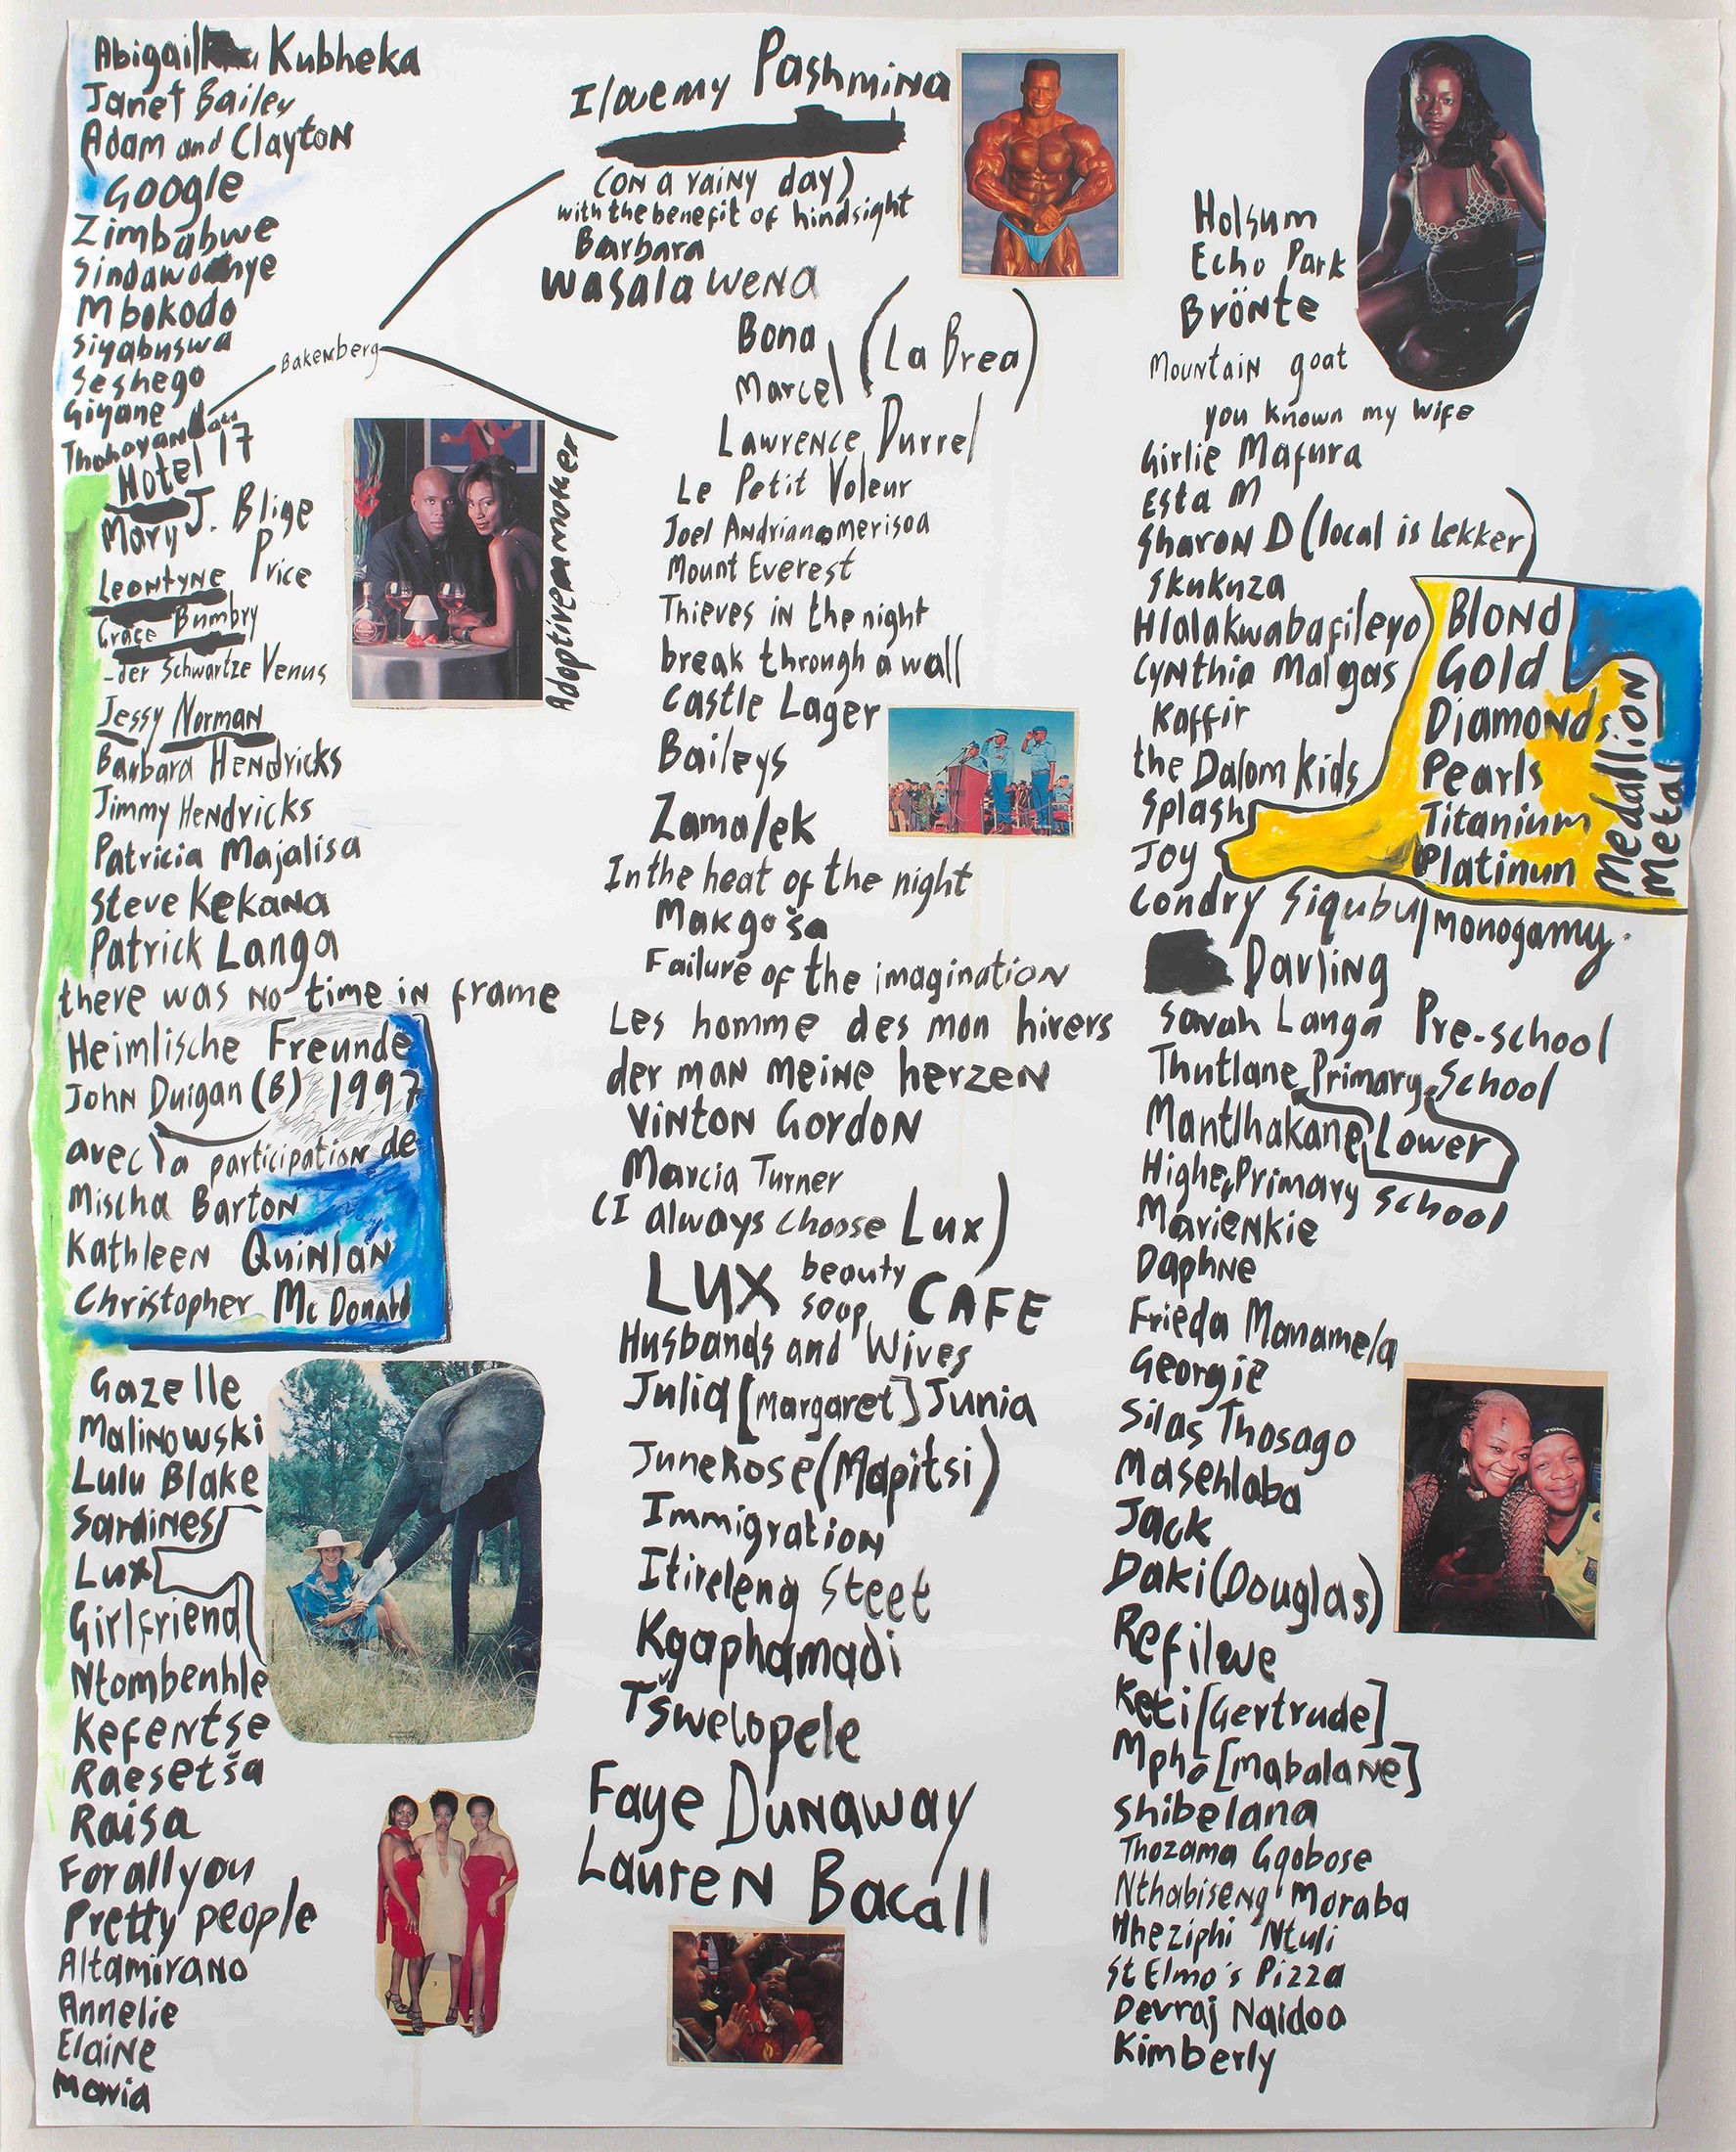 Abigail Kubheka
Janet Bailey
Adam and Clayton
Google
Zimbabwe
Mbokodo
Siyabuswa
Seshego
Giyane
Hotel 17
Mary J. Blige
Leontyne Price
Grace Bumbry
-der Schwartze Venus
Jessy Norman
Barbara Hendricks
Jimmy Hendricks
Patricia Majalisa
Steve Kekana
Patrick Langa
there was no time in frame
Heimlische Freunde
John Duigan (B) 1997
avec la participation de
Mischa Barton
Kathleen Quinlan
Christopher Mc Donald
Gazelle
Malinowski
Lulu Blake
Sardines
Lux
Girlfriend
Ntombenhle
Kefentse
Raesetša
Raisa
For all you
Pretty people
Altamirano
Annelie
Elaine
Maria
Bakenberg
Adoptive mother
I love my Pashmina
(on a rainy day)
with the benefit of hindsight
Barbara
Wasala wena
Bona
Marcel (La Brea)
Lawrence Durrel
Le Petit Voleur
Joel Andrianomerisoa
Mount Everest
Thieves in the night
break through a wall
Castle Lager
Baileys
Zamalek
In the heat of the night
Makgoša
Failure of the imagination
Les homme des mon hivers
der man meine herzen
Vinton Gordon
Marcia Turner
(I always choose Lux)
LUX beauty soap CAFE
Husbands and Wives
Julia [Margaret] Junia
June Rose (Mapitsi)
Immigration
Itireleng Steet
Kgaphamadi
Tšwelopele
Faye Dunaway
Lauren Bacall
Holsum
Echo Park
Brönte
Mountain goat
you known my wife
Girlie Mafura
Esta M
Sharon D (local is lekker)
Skukuza
Hlalakwabafileyo
Cynthia Malgas
Kaffir
the Dalom Kids
Splash
Joy
Condry Siqubu
Blond
Gold
Diamonds
Pearls
Titanium
Platinun
Medallion
Metal
Monogamy.
Darling
Sarah Langa Pre-school
Thutlane Primary School
Mantlhakane Lower
Higher Primary School
Marienkie
Daphne
Frieda Manamela
Georgie
Silas Thosago
Masehlaba
Jack
Daki (Douglas)
Refilwe
Keti [Gertrude]
Mpho [Mabalane]
Shibelana
Thozama Gqobose
Nthabiseng Moraba
Nheziphi Ntuli
St Elmo's Pizza
Devraj Naidoo
Kimberly